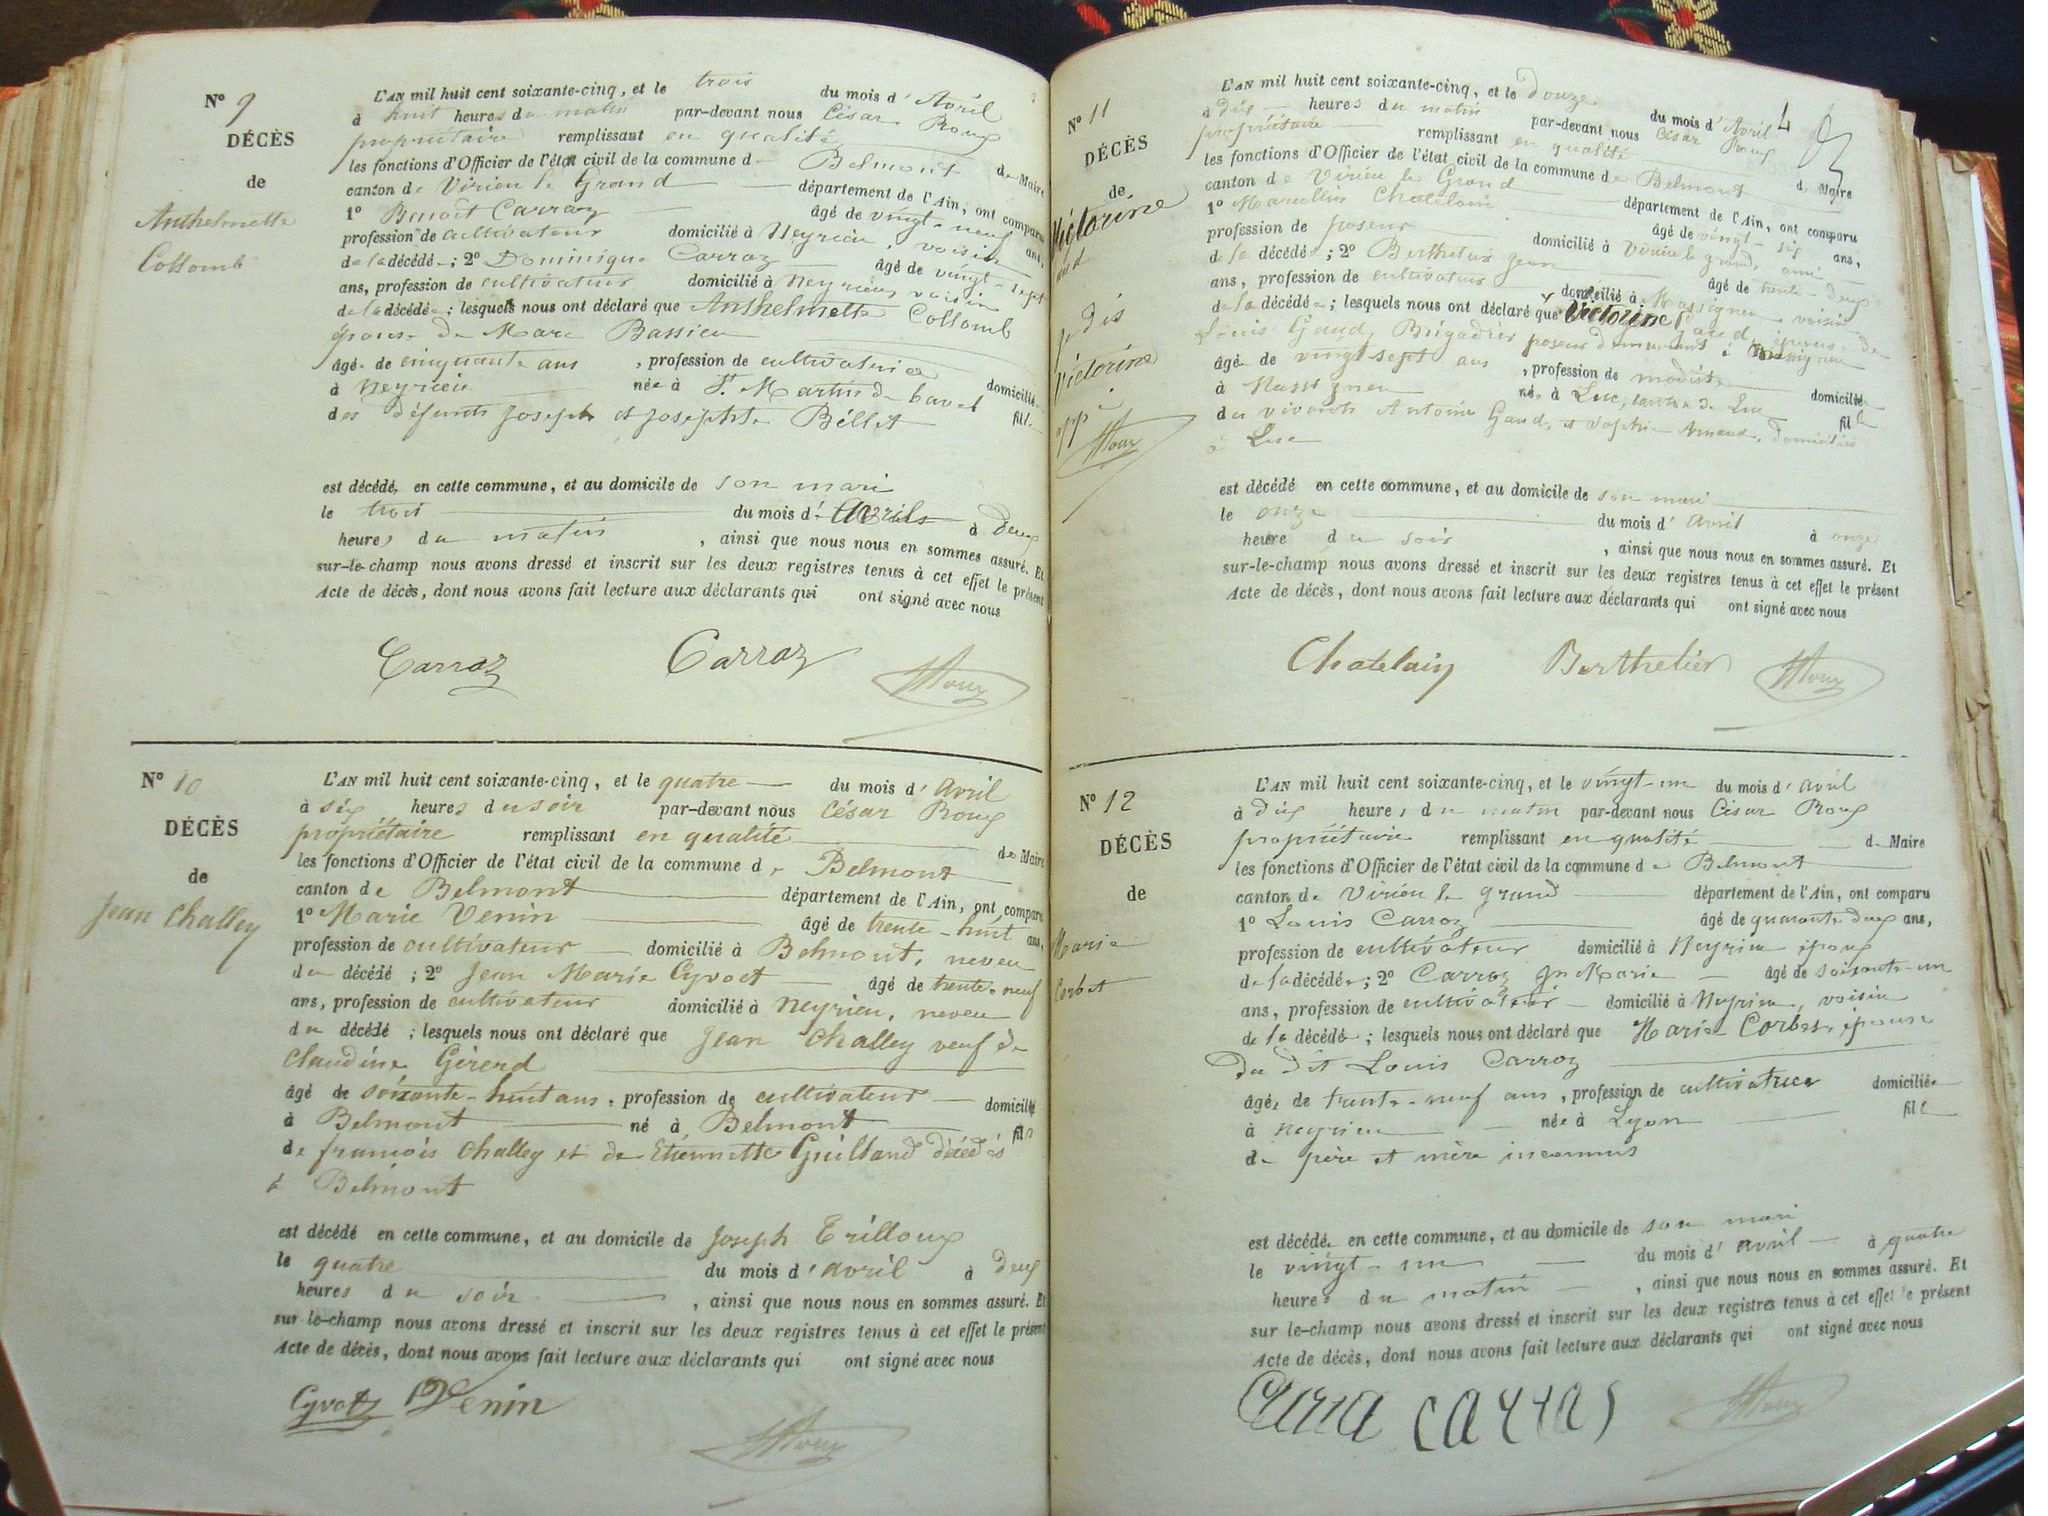 N° 9
DÉCÈS
de
Anthelmette
Collomb
L'AN mil huit cent soixante-cinq, et le trois du mois d'Avril
à huit heures du matin par-devant nous César Roux
propriétaire remplissant en qualité de Maire
les fonctions d'Officier de l'état civil de la commune de Belmont
canton de Virieu le Grand département de l'Ain, ont comparu
1° Benoît Carraz âgé de vingt-neuf ans,
profession de cultivateur domicilié à Neyrieu, voisin
de la décédée; 2° Dominique Carraz âgé de vingt-sept
ans, profession de cultivateur domicilié à Neyrieu, voisin
de la décédée; lesquels nous ont déclaré que Anthelmette Collomb
épouse de Marc Bassieu
âgée de cinquante ans, profession de cultivatrice domiciliée
à Neyrieu née à St Martin de bavel fille
des défunts Joseph et Josephte Béllet
est décédée en cette commune, et au domicile de son mari
le trois du mois d'Avril à deux
heures du matin, ainsi que nous nous en sommes assuré. Et
sur-le-champ nous avons dressé et inscrit sur les deux registres tenus à cet effet le présent
Acte de décès, dont nous avons fait lecture aux déclarants qui ont signé avec nous
Carraz Carraz Roux
N° 10
DÉCÈS
de
Jean Challey
L'AN mil huit cent soixante-cinq, et le quatre du mois d'avril
à six heures du soir par-devant nous César Roux
propriétaire remplissant en qualité de Maire
les fonctions d'Officier de l'état civil de la commune de Belmont
canton de Belmont département de l'Ain, ont comparu
1° Marie Venin âgé de trente-huit ans,
profession de cultivateur domicilié à Belmont, neveu
du décédé; 2° Jean Marie Cyvoct âgé de trente-neuf
ans, profession de cultivateur domicilié à Neyrieu, neveu
du décédé; lesquels nous ont déclaré que Jean Challey veuf de
Claudine Gérerd
âgé de soixante-huit ans, profession de cultivateur domicilié
à Belmont né à Belmont fils
de françois Challey et de Etiennette Guilland décédés
à Belmont
est décédé en cette commune, et au domicile de Joseph Trilloux
le quatre du mois d'avril à deux
heures du soir, ainsi que nous nous en sommes assuré. Et
sur le-champ nous avons dressé et inscrit sur les deux registres tenus à cet effet le présent
Acte de décès, dont nous avons fait lecture aux déclarants qui ont signé avec nous
Cyvoct Venin Roux
4
N° 11
DÉCÈS
de
Victorine
Victorine
Roux
L'AN mil huit cent soixante-cinq, et le douze du mois d'Avril
à dix heures du matin par-devant nous César Roux
propriétaire remplissant en qualité de Maire
les fonctions d'Officier de l'état civil de la commune de Belmont
canton de Virieu le Grand département de l'Ain, ont comparu
1° Marcellin Chatelain âgé de vingt-six ans,
profession de poseur domicilié à Virieu le grand, ami
de la décédée; 2° Berthelier Jean âgé de trente-deux
ans, profession de cultivateur domicilié à Massignieu, voisin
de la décédée; lesquels nous ont déclaré que Victorine Gaud, épouse de
Louis Gaud, Brigadier poseur demeurant à Massignieu
âgée de vingt-sept ans, profession de modiste domiciliée
à Massignieu née à Luc, canton de Luc fille
des vivants Antoine Gaud, et Sophie Arnaud, domiciliés
à Luc
est décédé en cette commune, et au domicile de son mari
le onze du mois d'avril à onze
heure du soir, ainsi que nous nous en sommes assuré. Et
sur-le-champ nous avons dressé et inscrit sur les deux registres tenus à cet effet le présent
Acte de décès, dont nous avons fait lecture aux déclarants qui ont signé avec nous
Chatelain Berthelier Roux
N° 12
DÉCÈS
de
Marie
Corbet
L'AN mil huit cent soixante-cinq, et le vingt-un du mois d'avril
à dix heures du matin par-devant nous César Roux
propriétaire remplissant en qualité de Maire
les fonctions d'Officier de l'état civil de la commune de Belmont
canton de Virieu le grand département de l'Ain, ont comparu
1° Louis Carroz âgé de quarante deux ans,
profession de cultivateur domicilié à Neyrieu époux
de la décédée; 2° Carroz Jn Marie âgé de soixante-un
ans, profession de cultivateur domicilié à Neyrieu, voisin
de la décédée; lesquels nous ont déclaré que Marie Corbet, épouse
du dit Louis Carroz
âgée de trente-neuf ans, profession de cultivatrice domiciliée
à Neyrieu née à Lyon fille
de père et mère inconnus
est décédée en cette commune, et au domicile de son mari
le vingt-un du mois d'avril à quatre
heures du matin, ainsi que nous nous en sommes assuré. Et
sur le-champ nous avons dressé et inscrit sur les deux registres tenus à cet effet le présent
Acte de décès, dont nous avons fait lecture aux déclarants qui ont signé avec nous
Roux